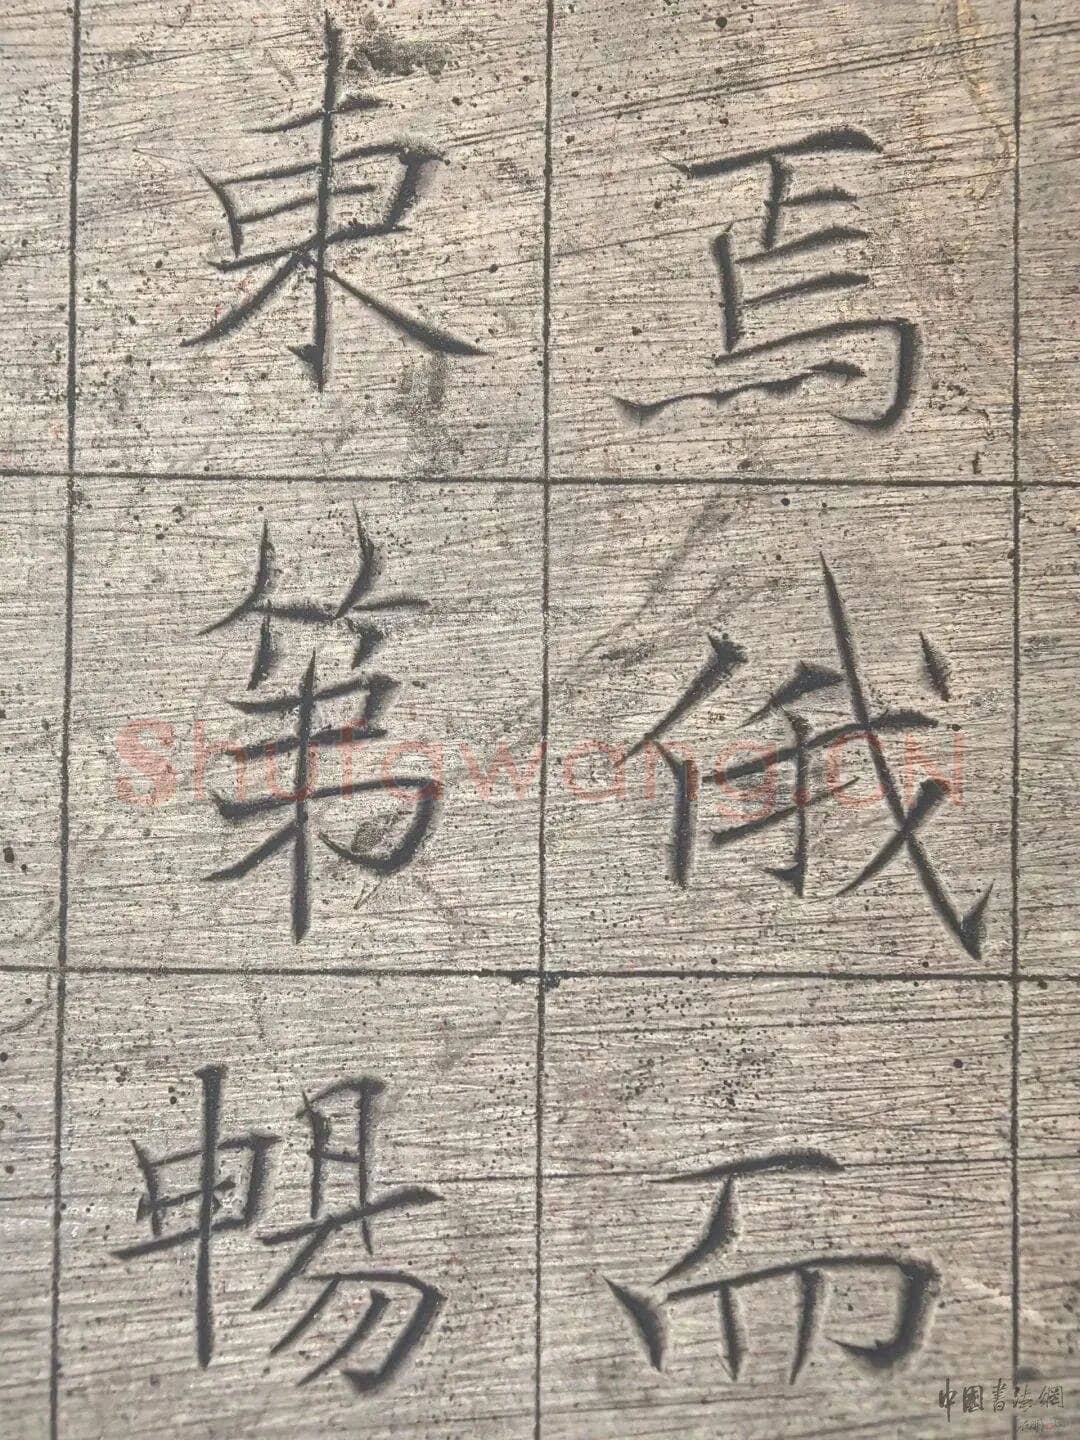 焉俄而
東第暢
Shufawang.CN
中國書法網